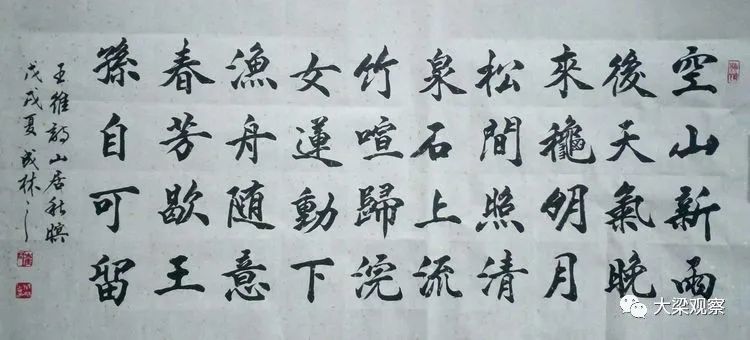 空山新雨
後天氣晚
來龝明月
松間照清
泉石上流
竹喧歸浣
女蓮動下
漁舟随意
春芳歇王
孫自可留
王維詩山居秋暝
戊戌夏成林
大梁观察